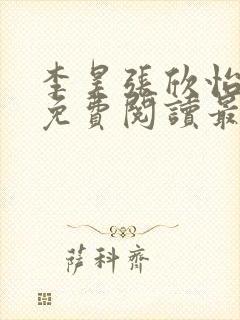 李昊張欣怡
免費閱讀最
薩科齊